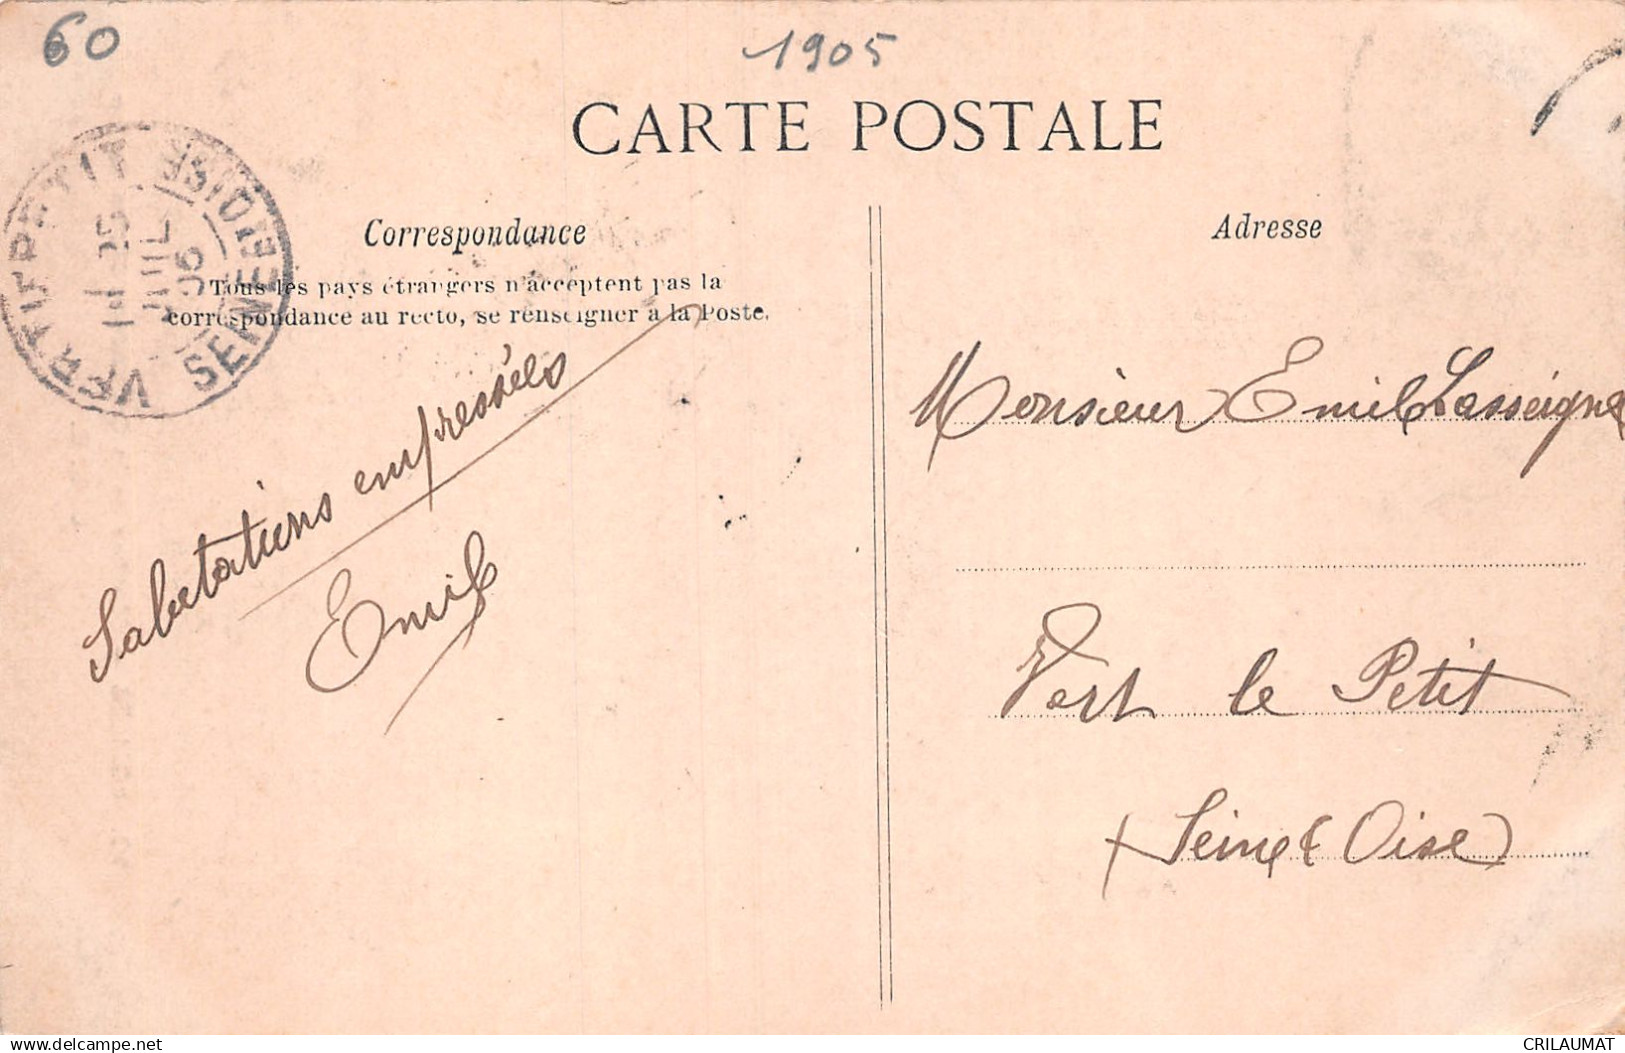 60
1905
CARTE POSTALE
VERT LE PETIT
SEINE ET OISE
25
JUIL
05
Correspondance
Tous les pays étrangers n'acceptent pas la
correspondance au recto, se renseigner à la Poste.
Salutations empressées
Emile
Adresse
Monsieur Emile Lasseigne
Vert le Petit
(Seine & Oise)
CRILAUMAT